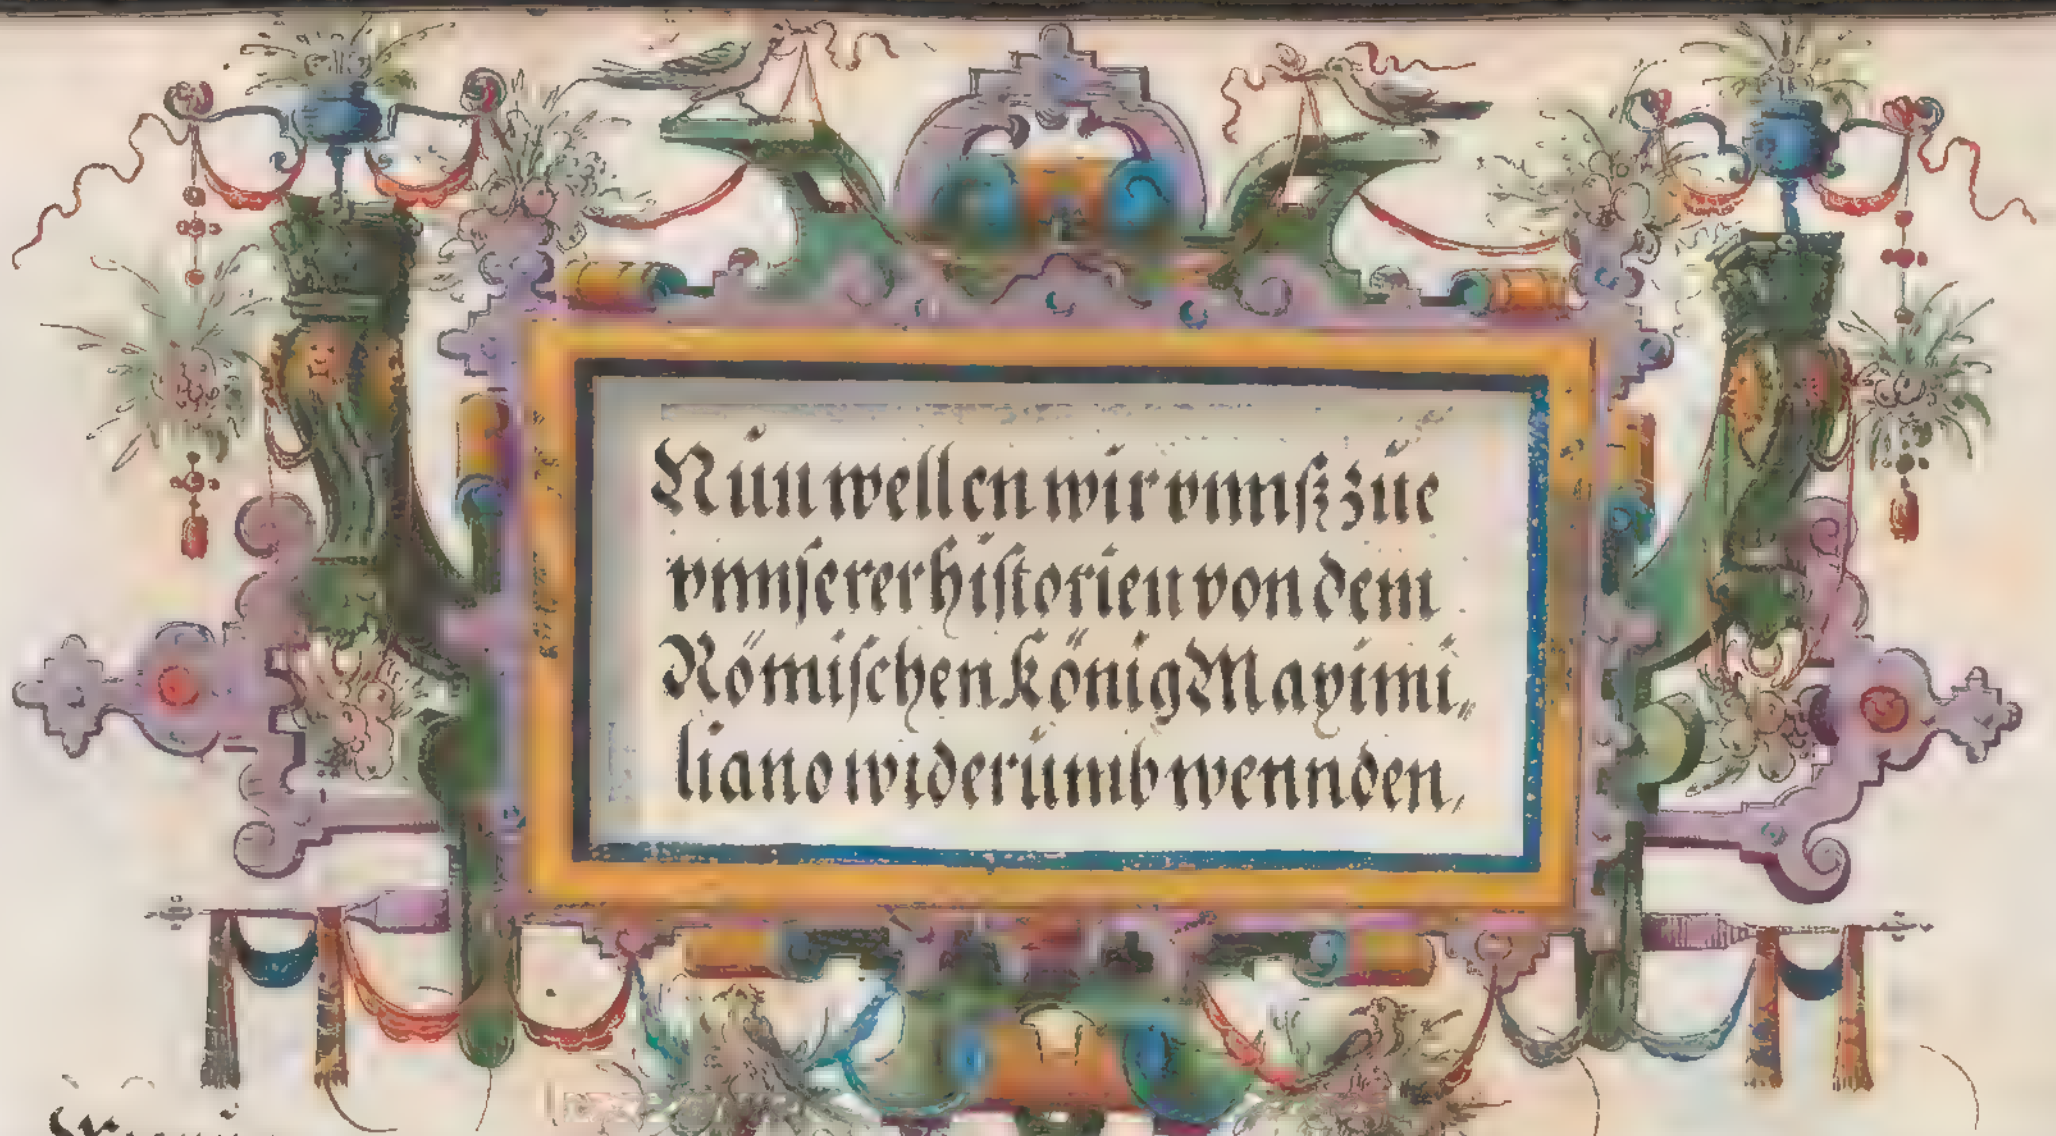 Nun wellen wir vnnß zue
vnnserer historien von dem
Römischen König Mayimi,,
liano widerumb wennden,